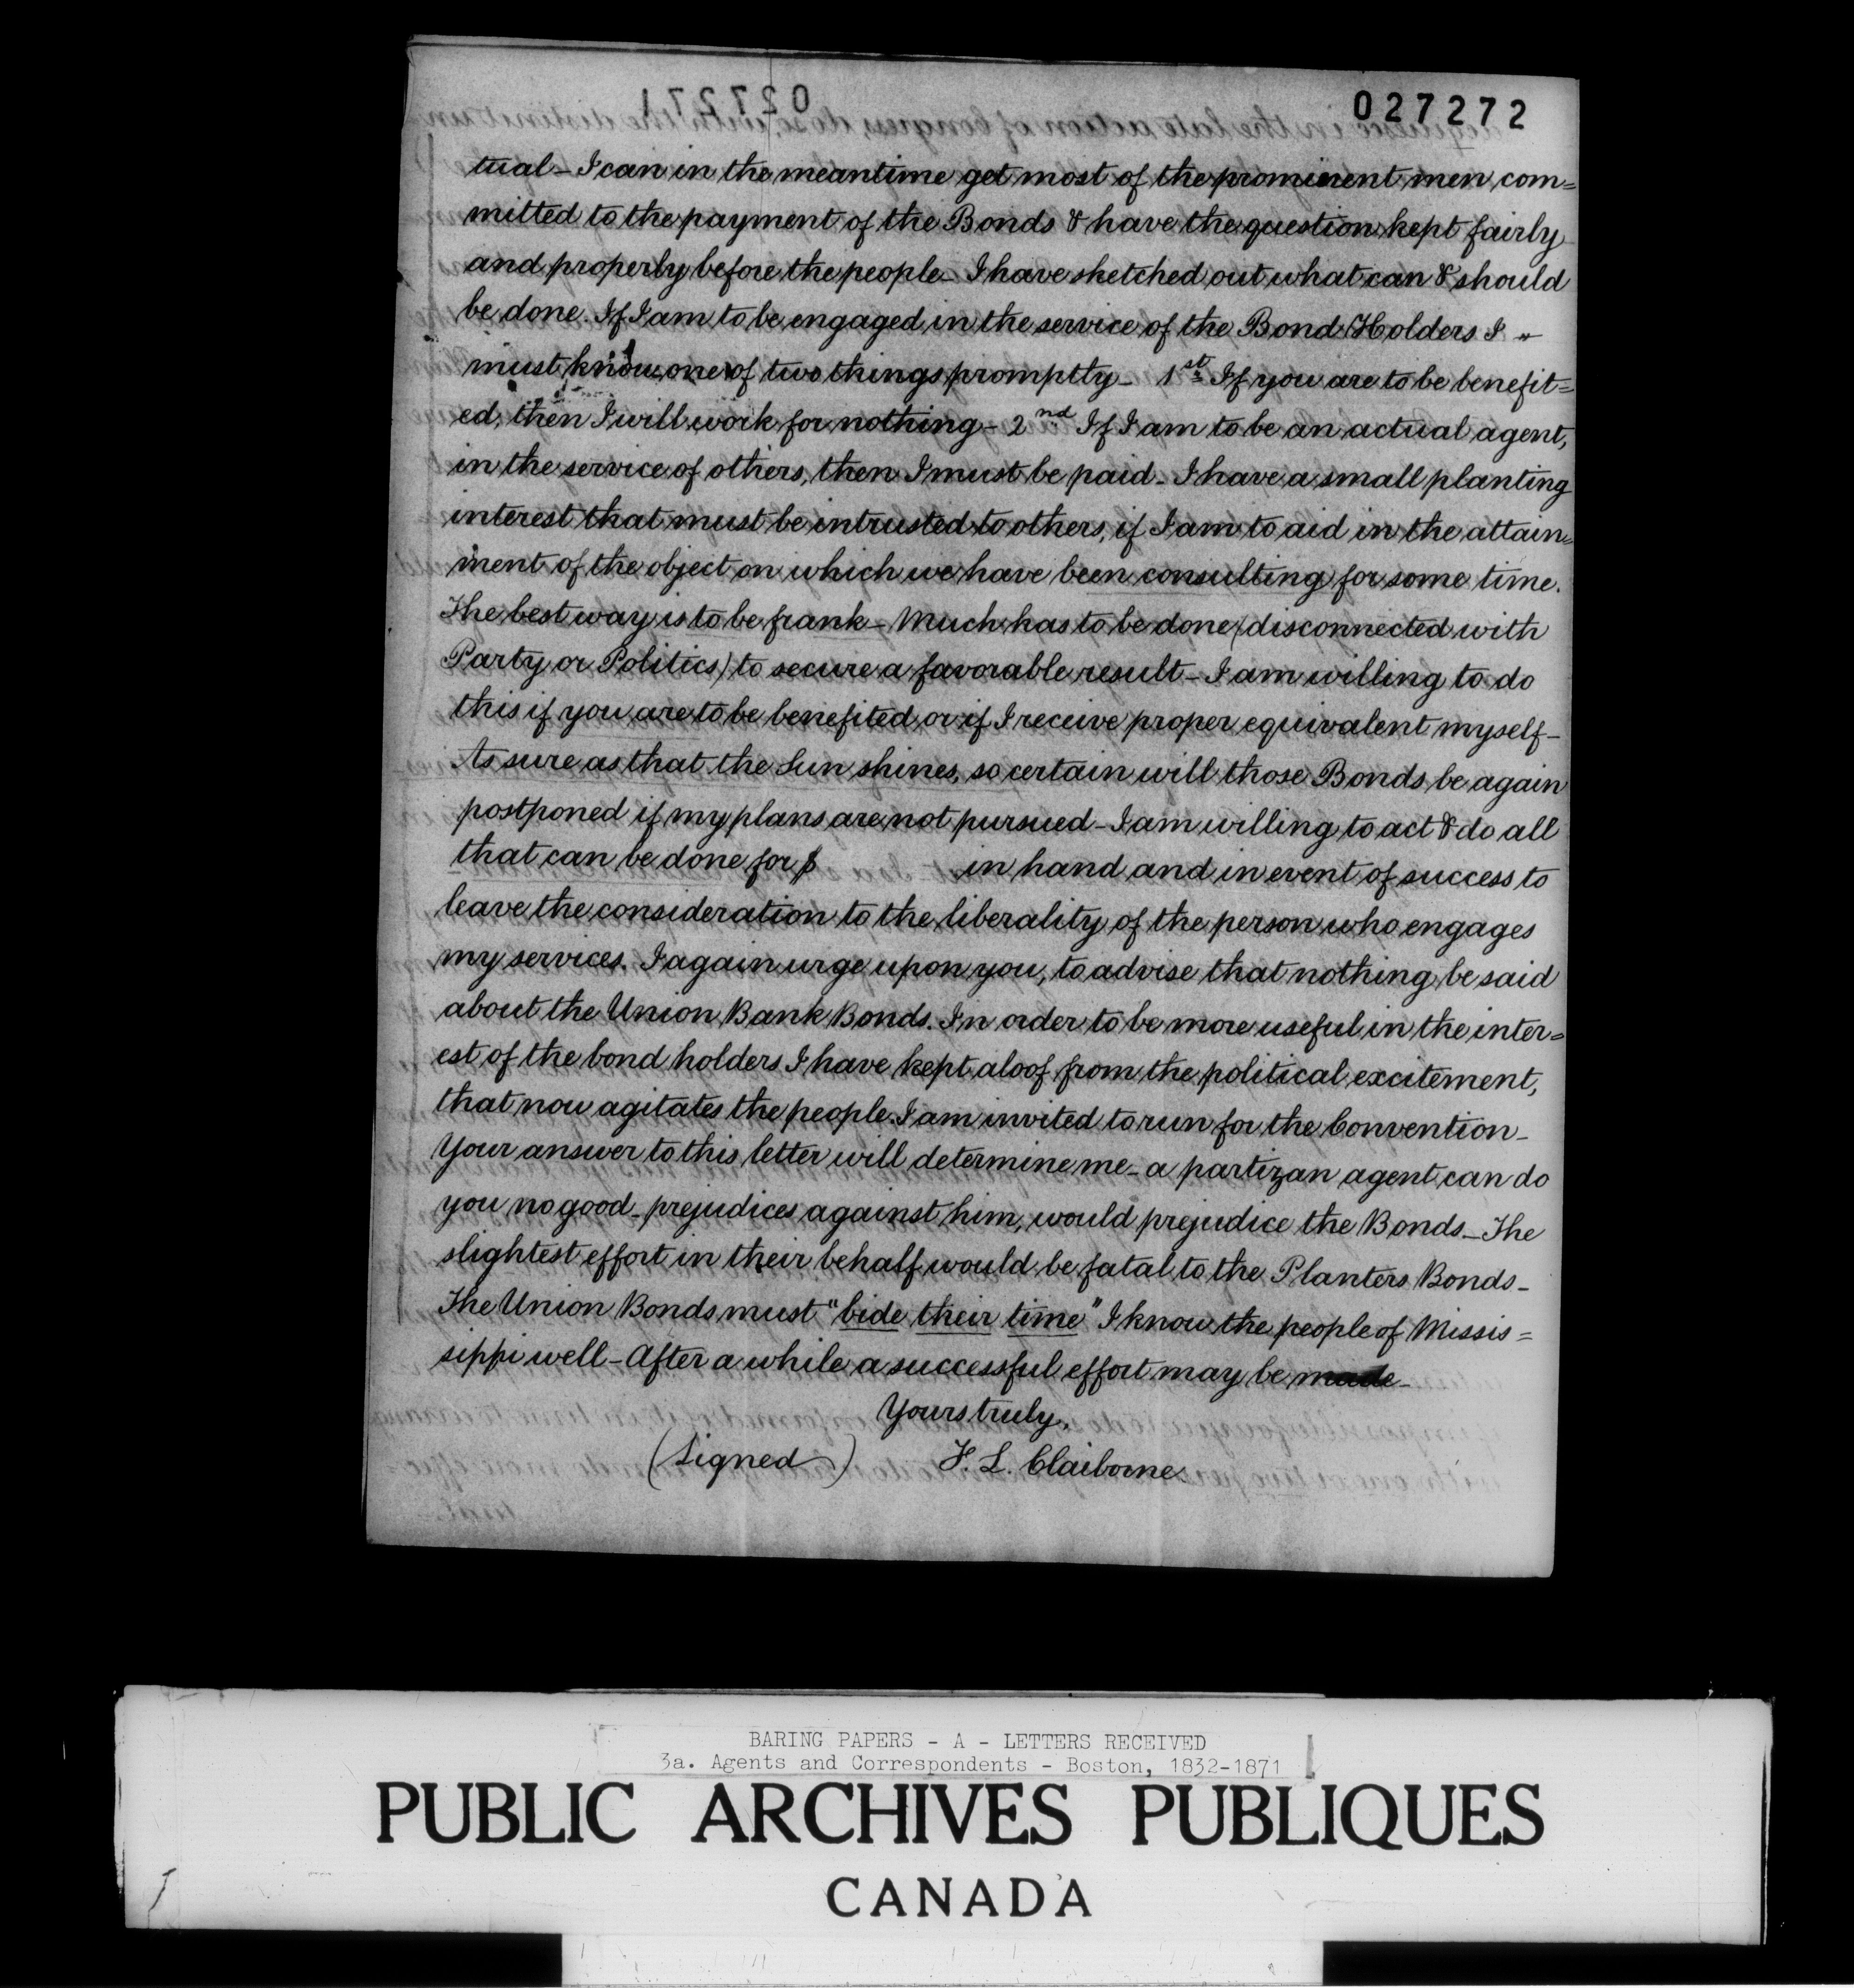 027271
027272
tual – I can in the meantime get most of the prominent men, com=
mitted to the payment of the Bonds & have the question kept fairly
and properly before the people – I have sketched out what can & should
be done. If I am to be engaged in the service of the Bond Holders I „
must know one of two things promptly – 1st If you are to be benefit=
ed, then I will work for nothing – 2nd If I am to be an actual agent,
in the service of others, then I must be paid – I have a small planting
interest that must be intrusted to others, if I am to aid in the attain=
ment of the object on which we have been consulting for some time.
The best way is to be frank – Much has to be done (disconnected with
Party or Politics) to secure a favorable result – I am willing to do
this if you are to be benefited or if I receive proper equivalent myself –
As sure as that the Sun shines, so certain will those Bonds be again
postponed if my plans are not pursued – I am willing to act & do all
that can be done for $ in hand and in event of success to
leave the consideration to the liberality of the person who engages
my services. I again urge upon you, to advise that nothing be said
about the Union Bank Bonds. In order to be more useful in the inter=
est of the bond holders I have kept aloof from the political excitement,
that now agitates the people. I am invited to run for the Convention –
Your answer to this letter will determine me – a partizan agent can do
you no good – prejudices against him, would prejudice the Bonds – The
slightest effort in their behalf would be fatal to the Planters Bonds –
The Union Bonds must "bide their time" I know the people of Missis=
sippi well – After a while a successful effort may be made –
Yours truly,
(Signed) F. L. Claiborne.
BARING PAPERS - A - LETTERS RECEIVED
3a. Agents and Correspondents - Boston, 1832-1871
PUBLIC ARCHIVES PUBLIQUES
CANADA